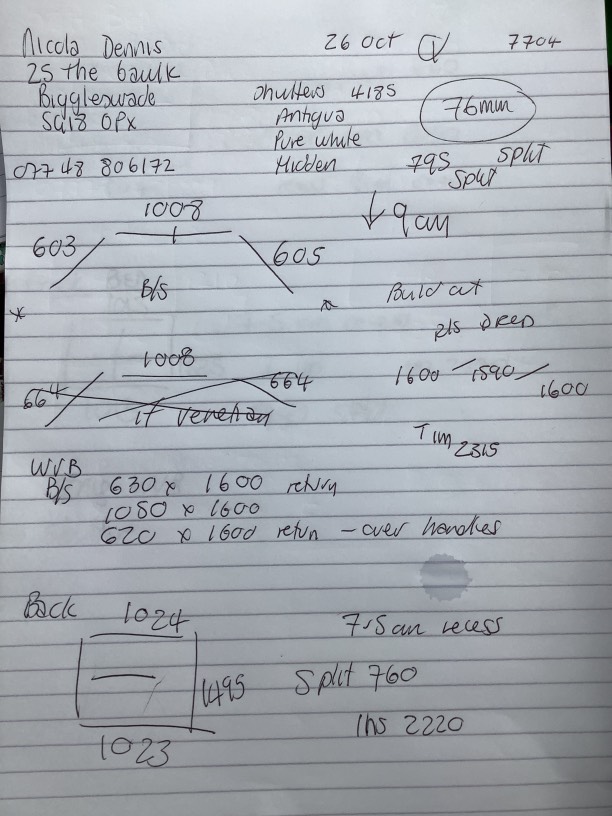 Nicola Dennis 26 Oct 7704
25 the baulk
Biggleswade Shutters 4185
SG18 0PX Antigua 76mm
Pure white
07748 806172 Hidden 795 split
split
1008 ↓ 9 am
603 605
B/S Build out
* *
R/S Deep
1008 1600 / 1590 / 1600
664 664
if venetian
Tim 2315
WVB
B/S 630 x 1600 return
1050 x 1600
620 x 1600 return - over handles
Back 1024 7.5cm recess
1495 Split 760
1023 lhs 2220